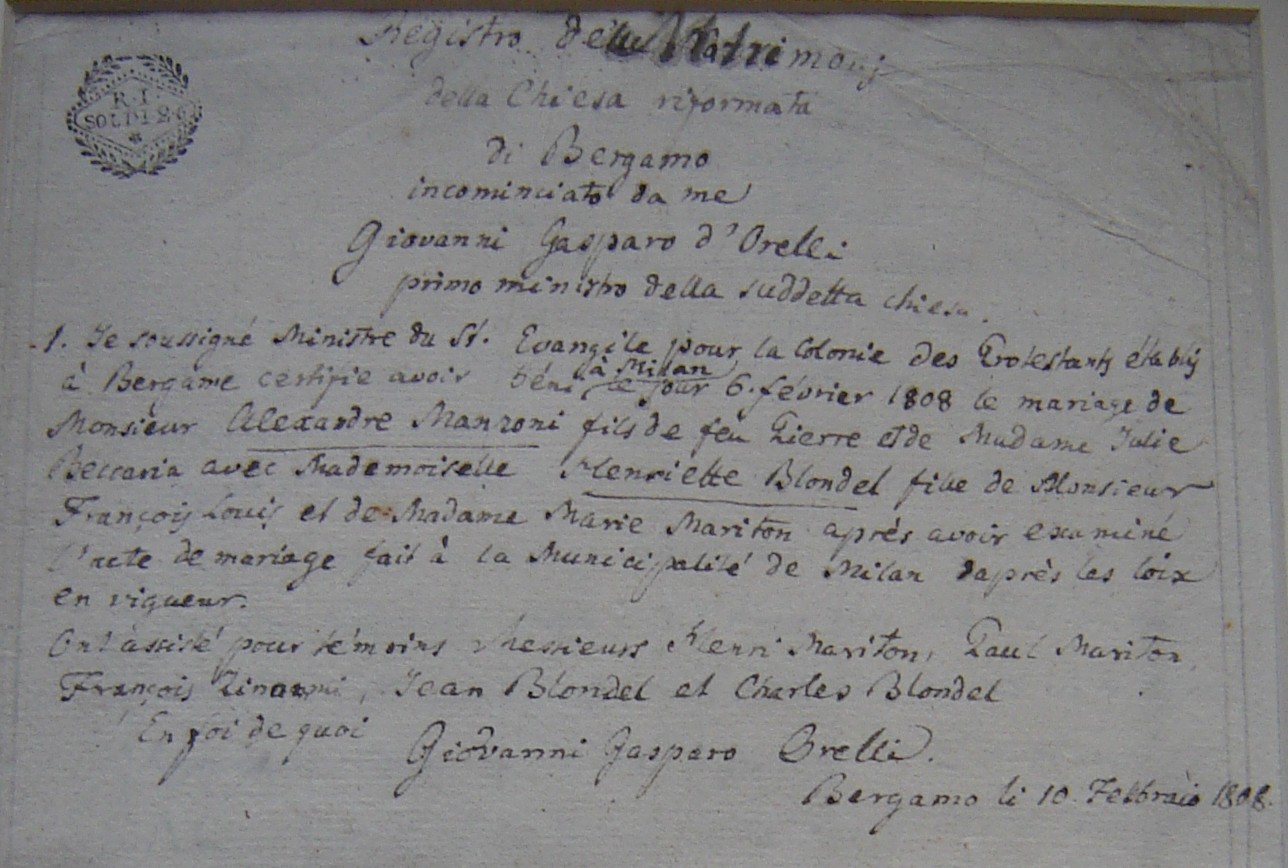 R. I.
SOLDI 26
Registro delle Matrimonj
della Chiesa riformata
di Bergamo
incominciato da me
Giovanni Gasparo d'Orelli
primo ministro della suddetta chiesa.
1. Je soussigné Ministre du St. Evangile pour la Colonie des Protestants établis
à Milan
à Bergame certifie avoir béni le jour 6. février 1808 le mariage de
Monsieur Alexandre Manzoni fils de feu Pierre et de Madame Julie
Beccaria avec Mademoiselle Henriette Blondel fille de Monsieur
François Louis et de Madame Marie Mariton après avoir examiné
l'acte de mariage fait à la Municipalité de Milan daprès les loix
en vigueur.
Ont assisté pour témoins Messieurs Henri Mariton, Paul Mariton,
François, Jean Blondel et Charles Blondel
En foi de quoi
Giovanni Gasparo Orelli.
Bergamo li 10. Febbraio 1808.